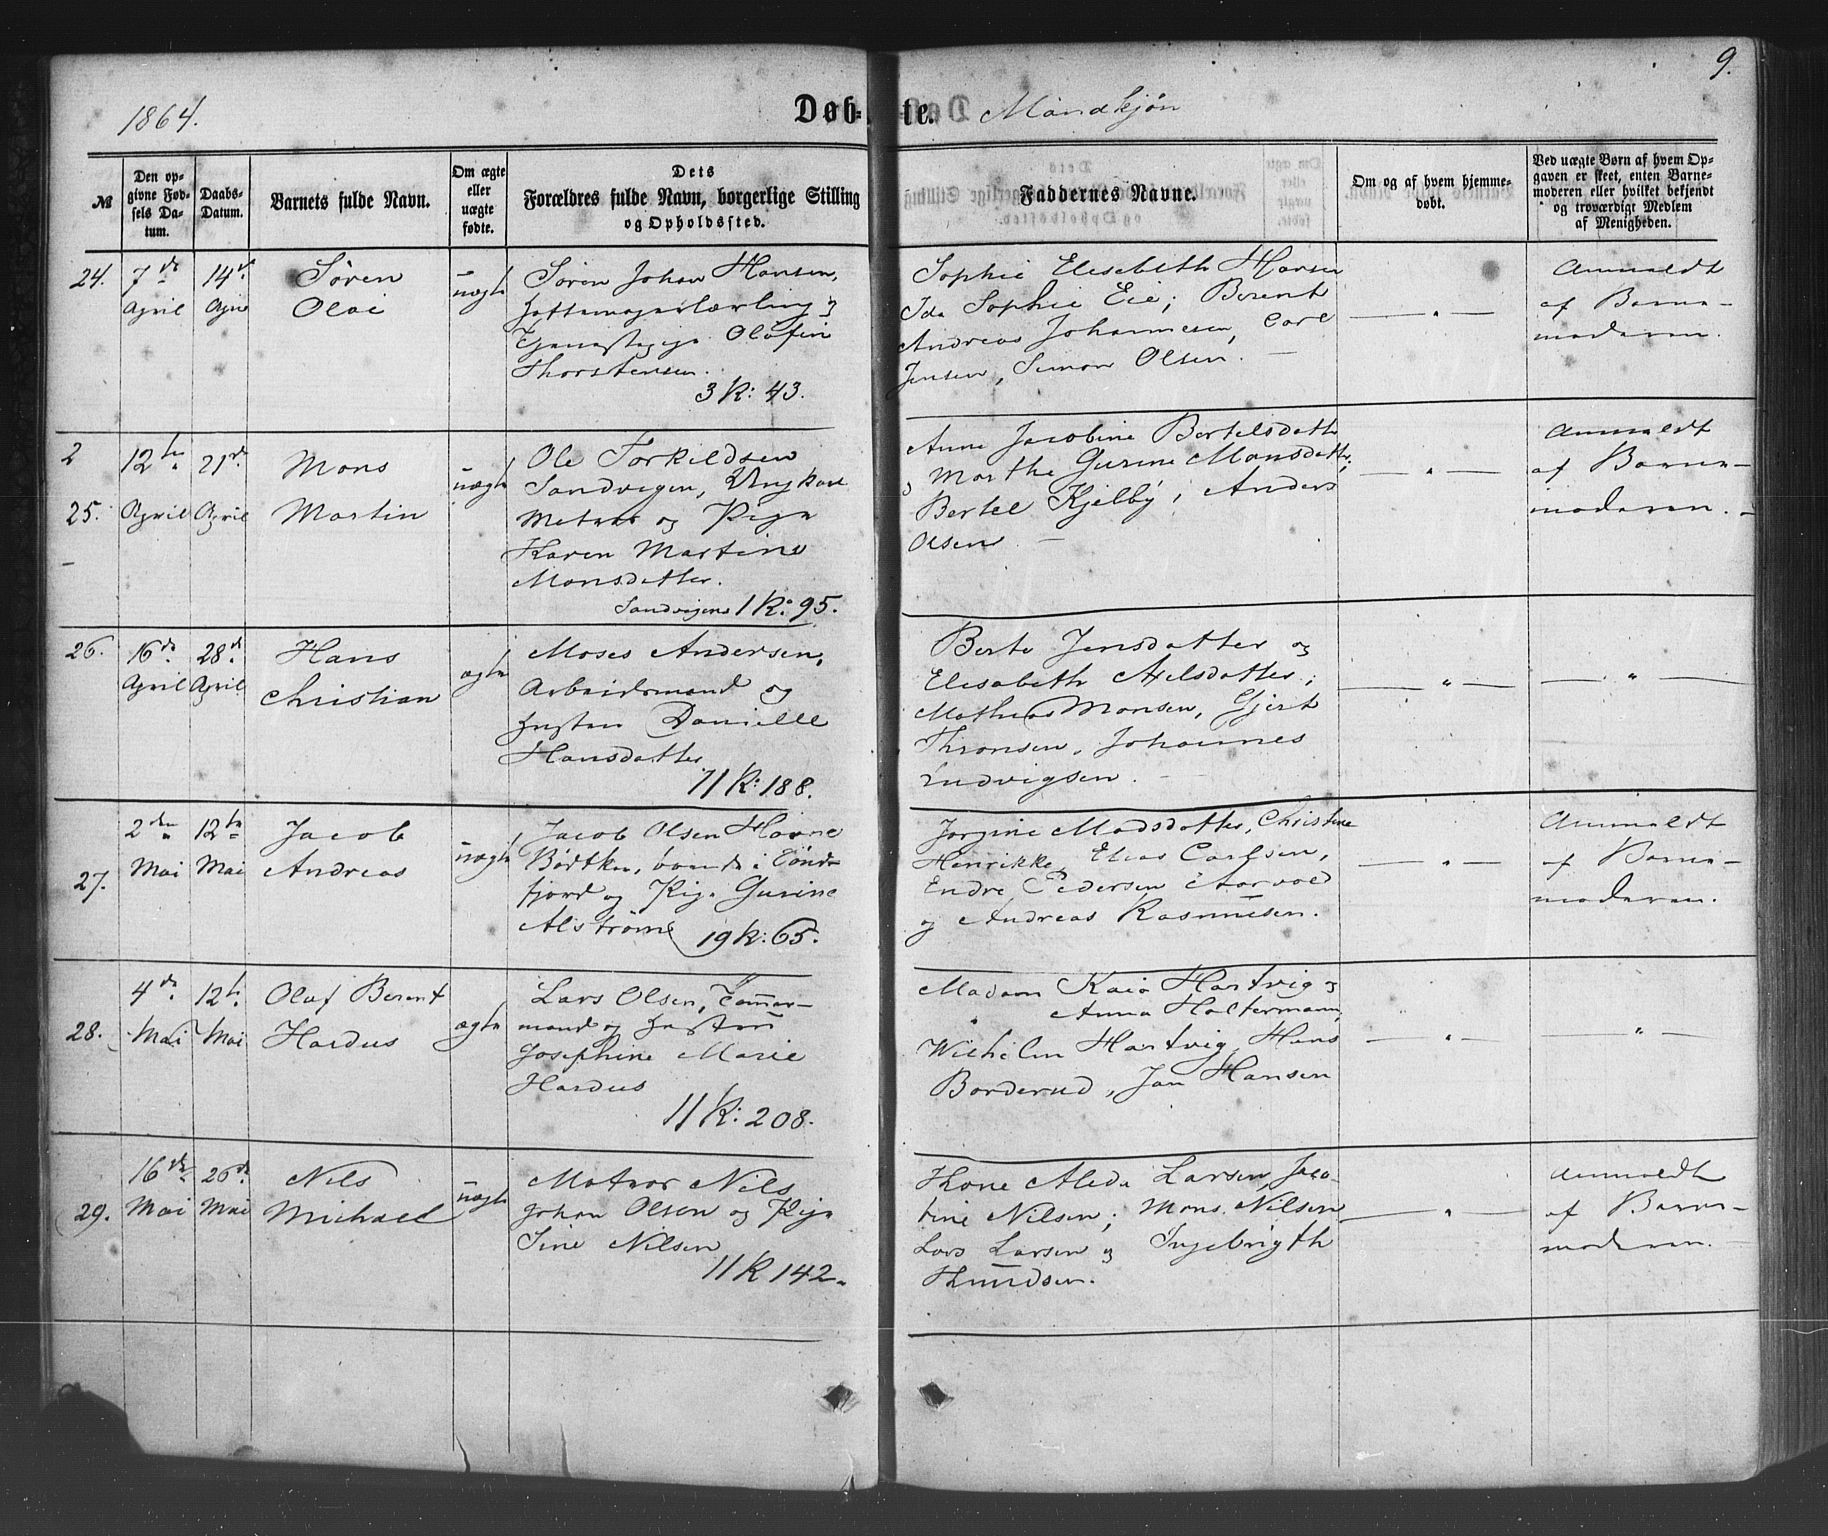 9.
1864.
Døb-
te.
Mandkjøn
№
Den op-
givne Fød-
sels Da-
tum.
Daabs-
Datum.
Barnets fulde Navn.
Om ægte
eller
uægte
fødte.
Dets
Forældres fulde Navn, borgerlige Stilling
og Opholdssted.
Faddernes Navne.
Om og af hvem hjemme-
døbt.
Ved uægte Børn af hvem Op-
gaven er skeet, enten Barne-
moderen eller hvilket bekjendt
og troværdigt Medlem
af Menigheden.
24.
7de
April
14d
Apr
Søren
Olai
uægte
Søren Johan Hansen,
Tjenestepige Olafin
Thorstensen.
3 K: 43.
Sophie Elisebeth Hansen
Ida Sophie Eie; Berent
Andreas Johannesen, Carl
Jensen, Simon Olsen. —
— " —
Anmeldt
af Barne-
moderen.
2
25.
12te
April
21de
April
Mons
Martin
uægte
Ole Torkildsen
Sandvigen,
Matros og Pige
Karen Martine
Monsdatter.
Sandvigen 1 K: 95.
Anne Jacobine Bertelsdatter
Marthe Gurine Monsdatter;
Bertel Kjelby; Anders
Olsen —
— " —
Anmeldt
af Barne-
moderen. -
26.
16de
April
28de
April
Hans
Christian
ægte
Moses Andersen,
Arbeidsmand og
Hustru Danielle
Hansdatter
11 K: 188.
Berte Jensdatter og
Elisabeth Axelsdatter;
Mathias Monsen, Gjert
Thronsen, Johannes
Ludvigsen.
— " —
— " —
27.
2den
Mai
12te
Mai
Jacob
Andreas
uægte
Jacob Olsen Havne
Bødtker, boende i Sønd-
fjord og Pige Gurine
Alstrøm 19 K: 65.
Jorgine Madsdatter, Christine
Henrikke, Elias Carlsen,
Endre Pedersen Aarvold
og Andreas Rasmusen.
— " —
Anmeldt
af Barne-
moderen.
28.
4de
Mai
12te
Mai
Olaf Berent
Hardus
ægte
Lars Olsen, Tømmer-
mand og Hustru
Josephine Marie
Hardus
11 K: 208.
Madam Kaia Hartvig og
" Anna Holtermann,
Wilhelm Hartvig, Hans
Borderud, Jan Hansen
— " —
— " —
29.
16de
Mai
26de
Mai
Nils
Michael
uægte
Matros Nils
Johan Olsen og Pige
Sine Nilsen
11 K 142.
Thone Alida Larsen, Jaco-
bine Nilsen; Mons Nilsen
Lars Larsen og Ingebrigth
Knudsen.
— " —
Anmeldt
af Barne-
moderen.